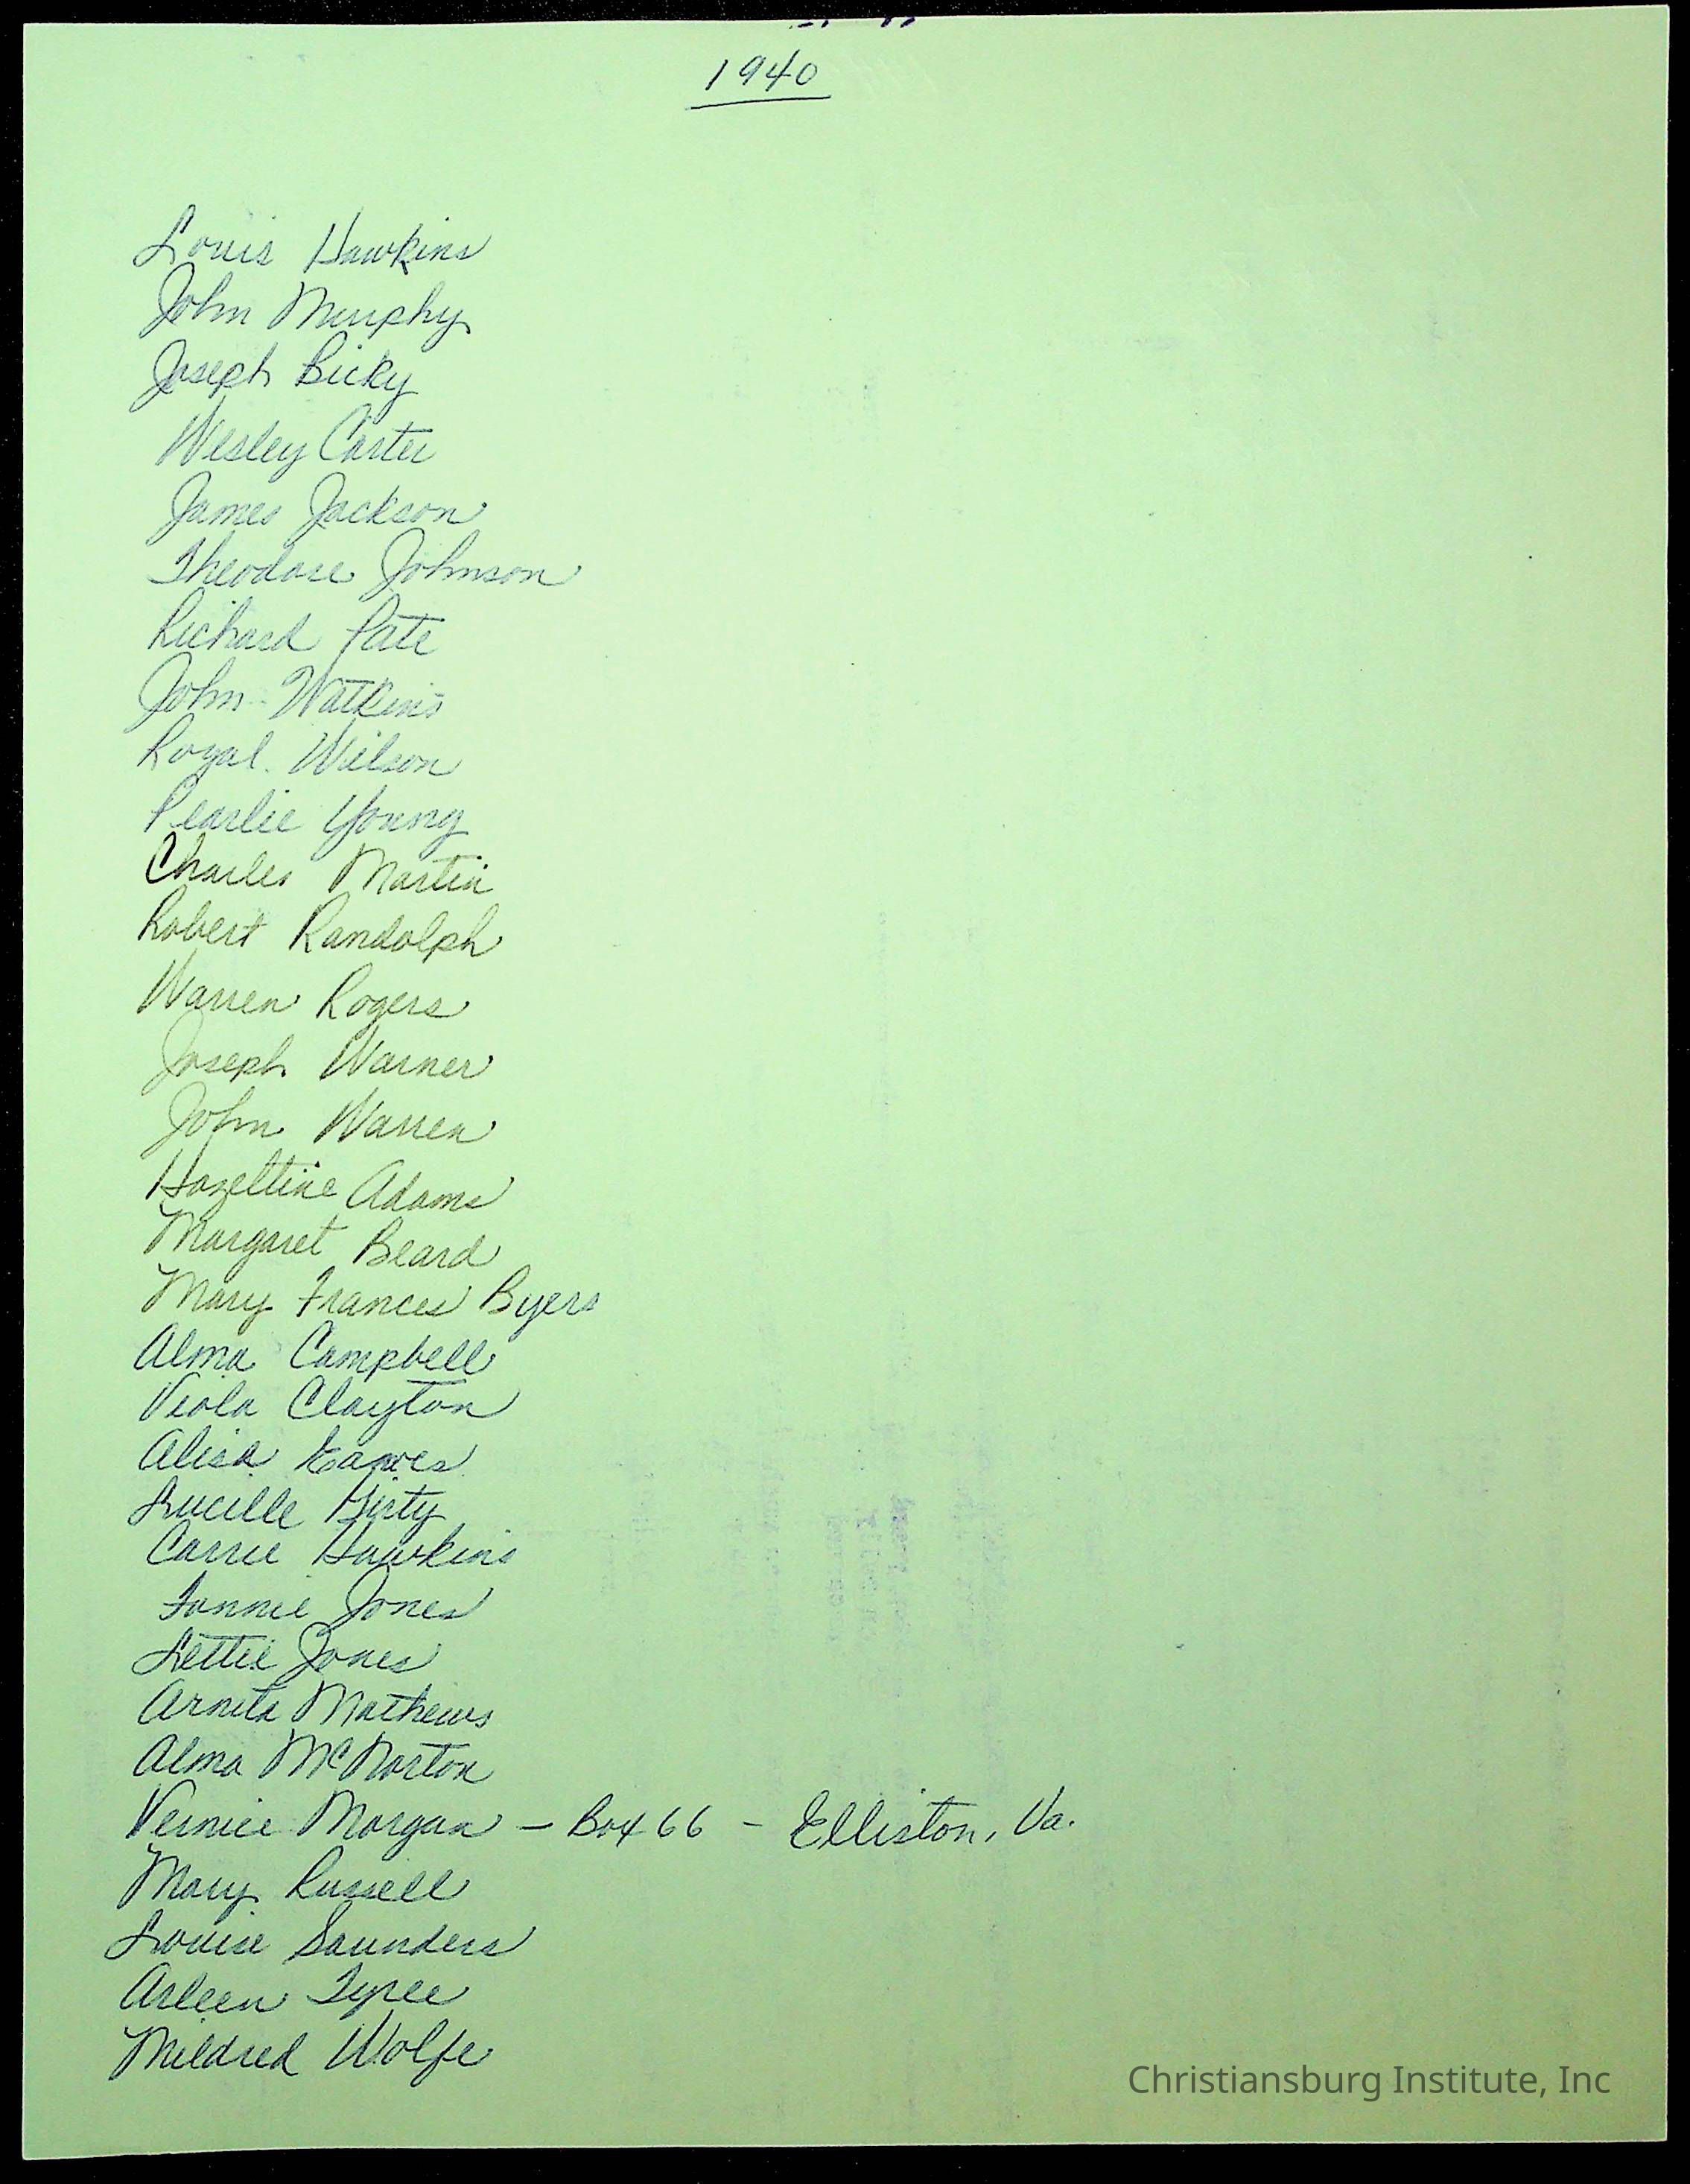 1940
Louis Hawkins
John Murphy
Joseph Bicky
Wesley Carter
James Jackson
Theodore Johnson
Richard Pate
John Watkins
Royal Wilson
Pearlie Young
Charles Martin
Robert Randolph
Warren Rogers
Joseph Warner
John Warren
Hazeltine Adams
Margaret Beard
Mary Frances Byers
Alma Campbell
Viola Clayton
Alisa Eaves
Lucille
Carrie Hawkins
Fannie Jones
Lettie Jones
Arnita Mathews
Alma McNorton
Vernice Morgan – Box 66 – Elliston, Va.
Mary Russell
Louise Saunders
Arleen Tyree
Mildred Wolfe
Christiansburg Institute, Inc